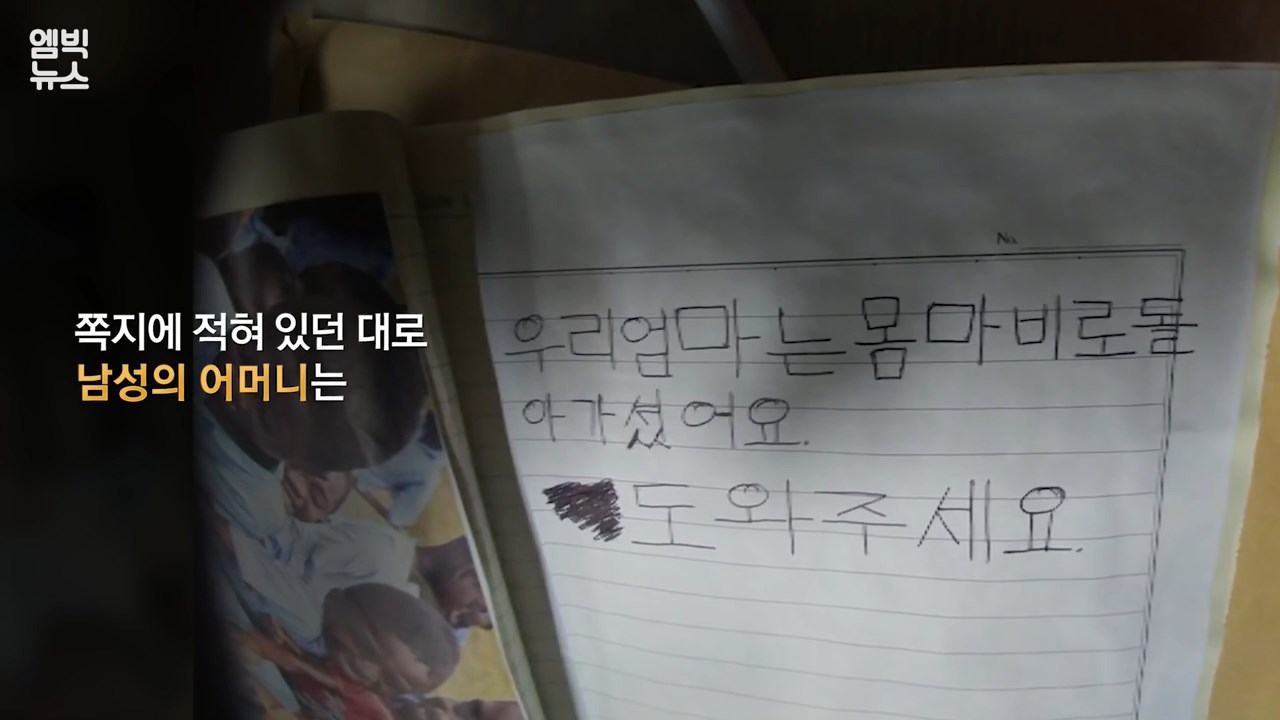 엠빅
뉴스
쪽지에 적혀 있던 대로
남성의 어머니는
No.
우리엄마는몸마비로돌
아가셨어요.
도와주세요.